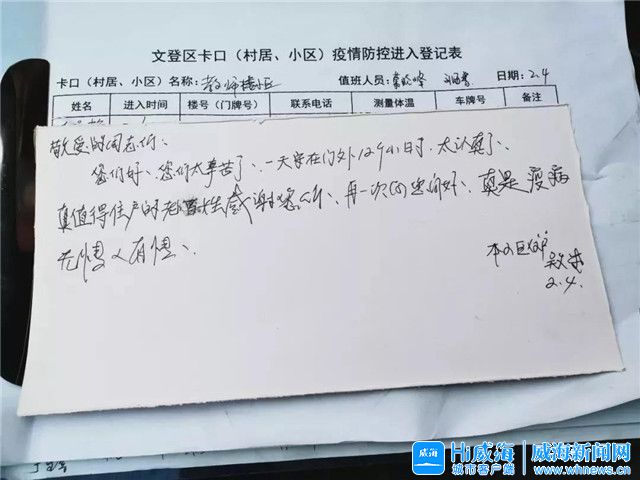 文登区卡口（村居、小区）疫情防控进入登记表
卡口（村居、小区）名称：教师楼小区 值班人员： 日期：2.4
姓名 进入时间 楼号（门牌号） 联系电话 测量体温 车牌号 备注
敬爱的同志们、
您们好、您们太辛苦了、一天守在门外12个小时、太认真了、
真值得住户的 感谢您们、再一次的问好、真是疫病
无情人有情、
本小区住户
2.4.
Hi威海
城市客户端
威海新闻网
www.whnews.cn